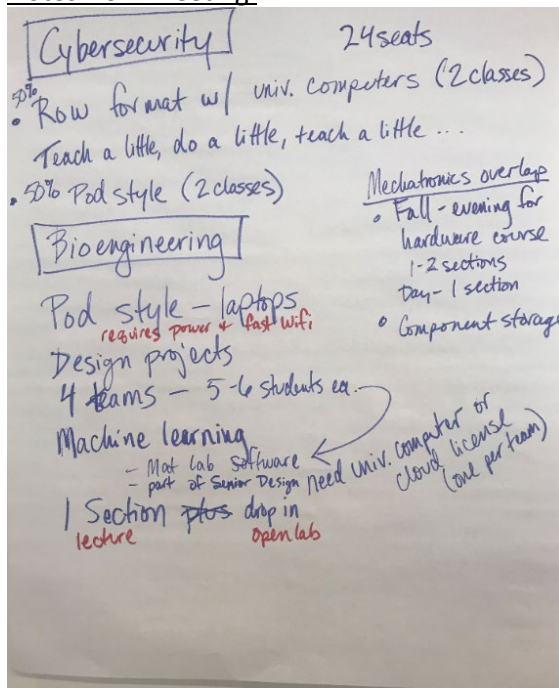 Cybersecurity
24 seats
50%
• Row format w/ univ. computers (2 classes)
Teach a little, do a little, teach a little ...
• 50% Pod style (2 classes)
Mechatronics overlap
• Fall - evening for
hardware course
1-2 sections
Day - 1 section
• Component storage
Bioengineering
Pod style - laptops
requires power + fast wifi
Design projects
4 teams - 5-6 students ea.
Machine learning
- Mat Lab Software
- part of Senior Design
need univ. computer or
cloud license
(one per team)
1 Section plus drop in
lecture
open lab